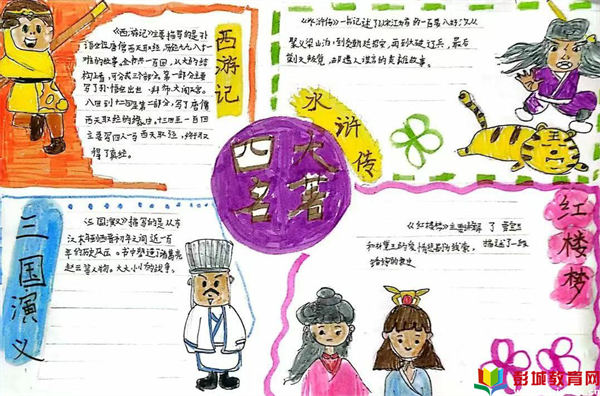 西游记
《西游记》主要描写的是孙
悟空保唐僧西天取经,历经九九八十
一难的故事。全书共一百回,从大的结
构上看,可分成三部分。第一部分主要
写了孙悟空出世
八回到十二回是第二部分,写了唐僧
西天取经的 十三回至一百回
主要写四人一马西天取经,终于又
得了真经。
水浒传
《水浒传》一书记述了以宋江为首的一百零八好汉从
聚义梁山泊,到受朝廷招安,再到大破辽兵,最后
英雄故事。
四大
名著
三国演义
《三国演义》描写的是从东
汉末年到西晋初年之间近一百
年的历史风云。书中塑造了诸葛亮
赵云等人物。大大小小的战争。
红楼梦
《红楼梦》主要讲解了贾宝玉
和林黛玉的爱情悲剧为线索, 描述了一段
历史
彭城教育网